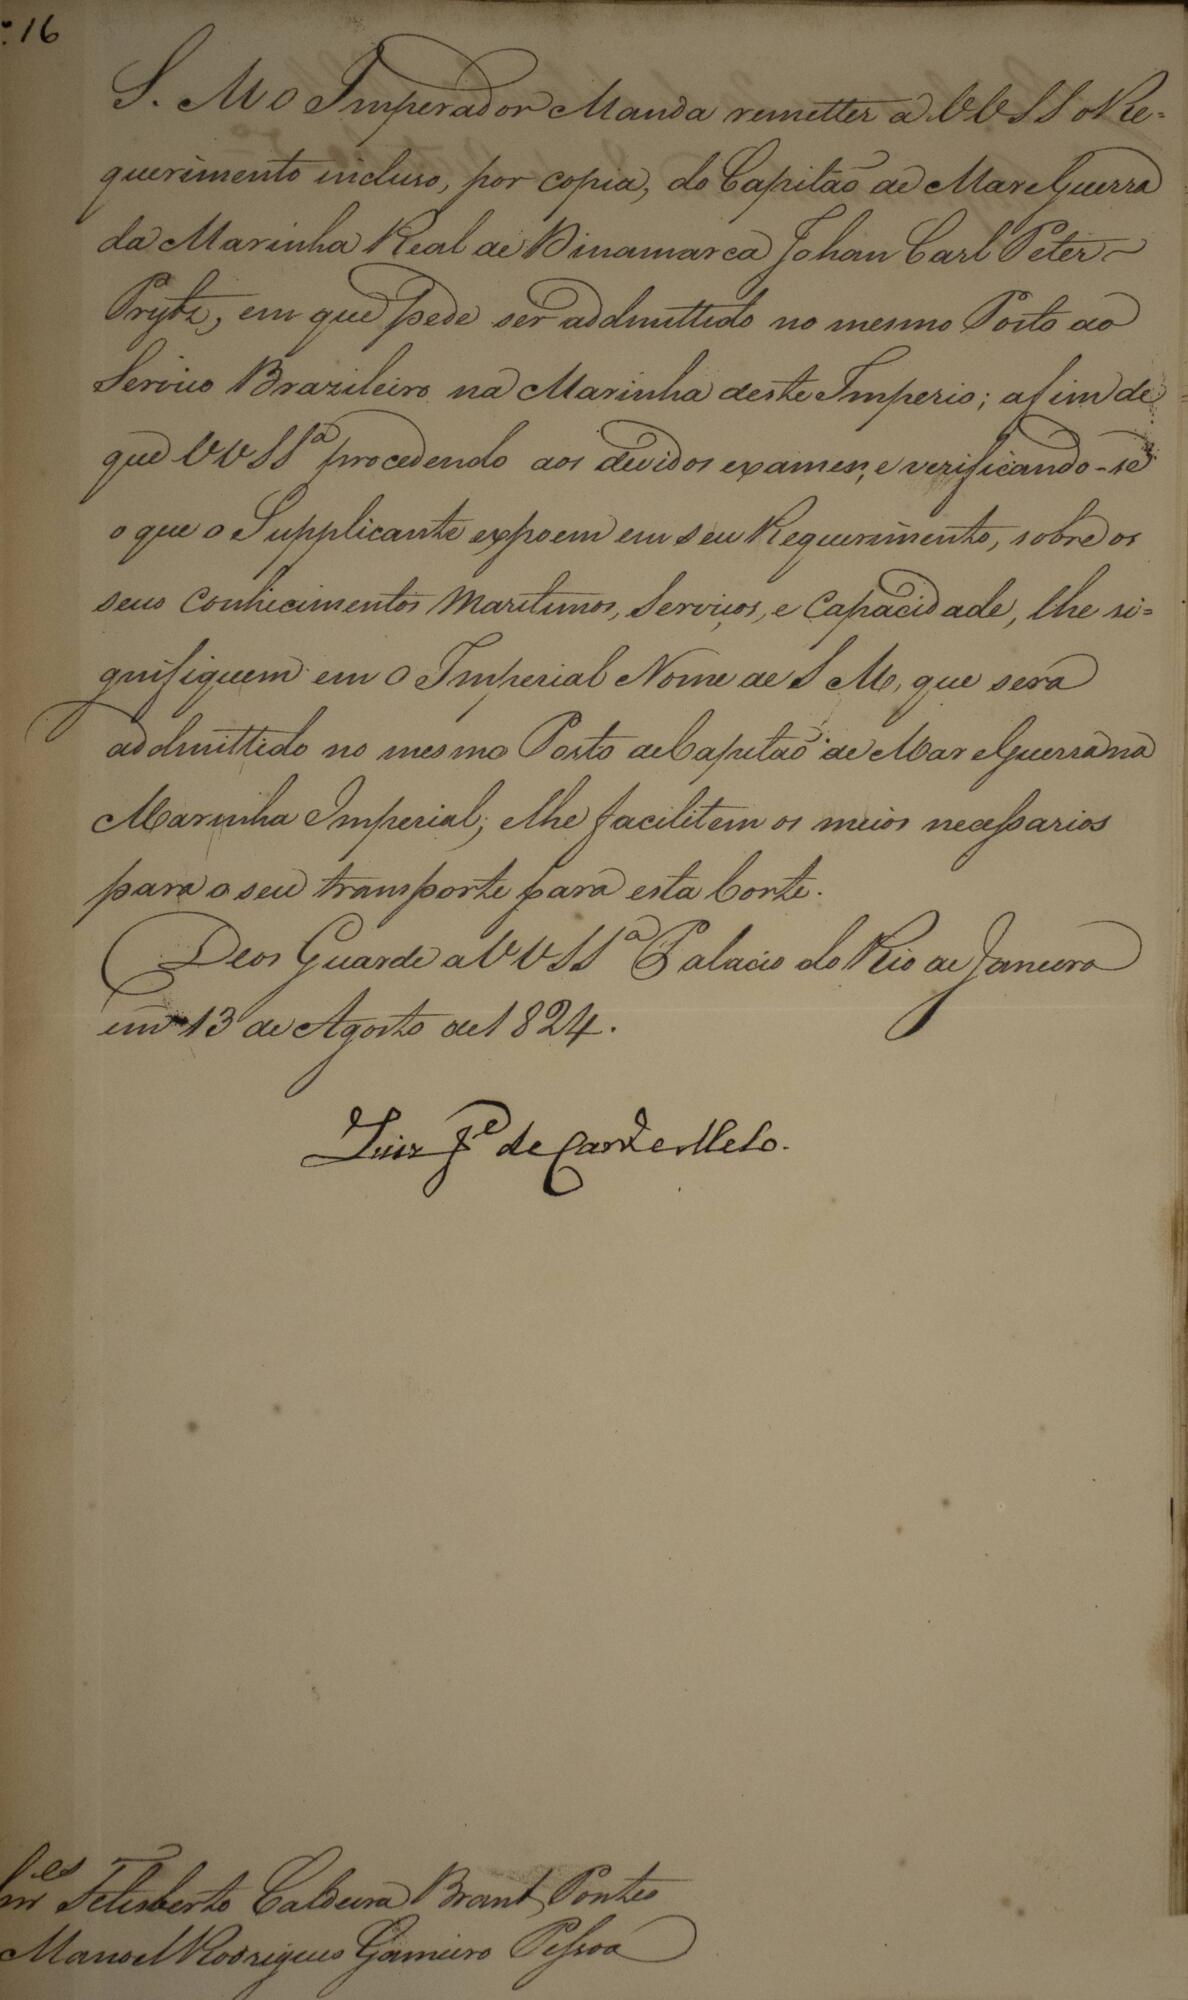 : 16
S. M o Imperador Manda remetter a VVSS o Re=
querimento incluso, por copia, do Capitão de Mar e Guerra
da Marinha Real de Dinamarca Johan Carl Peter
Prytz, em que pede ser addmittido no mesmo Posto ao
Serviço Brazileiro na Marinha deste Imperio; afim de
que VVSS.ª procedendo aos devidos exames, e verificando-se
o que o Supplicante expoem em seu Requerimento, sobre os
seus conhecimentos Maritimos, Serviços, e Capacidade, lhe si=
gnifiquem em o Imperial Nome de S M, que será
addmittido no mesmo Posto de Capitão de Mar e Guerra na
Marinha Imperial; e lhe facilitem os meios necessarios
para o seu transporte para esta Corte.
Deos Guarde a VVSS.ª Palacio do Rio de Janeiro
em 13 de Agosto de 1824.
Luiz Jᵉ de Carv.º e Mello.
Felisberto Caldeira Brant Pontes
Manoel Rodrigues Gameiro Pessoa